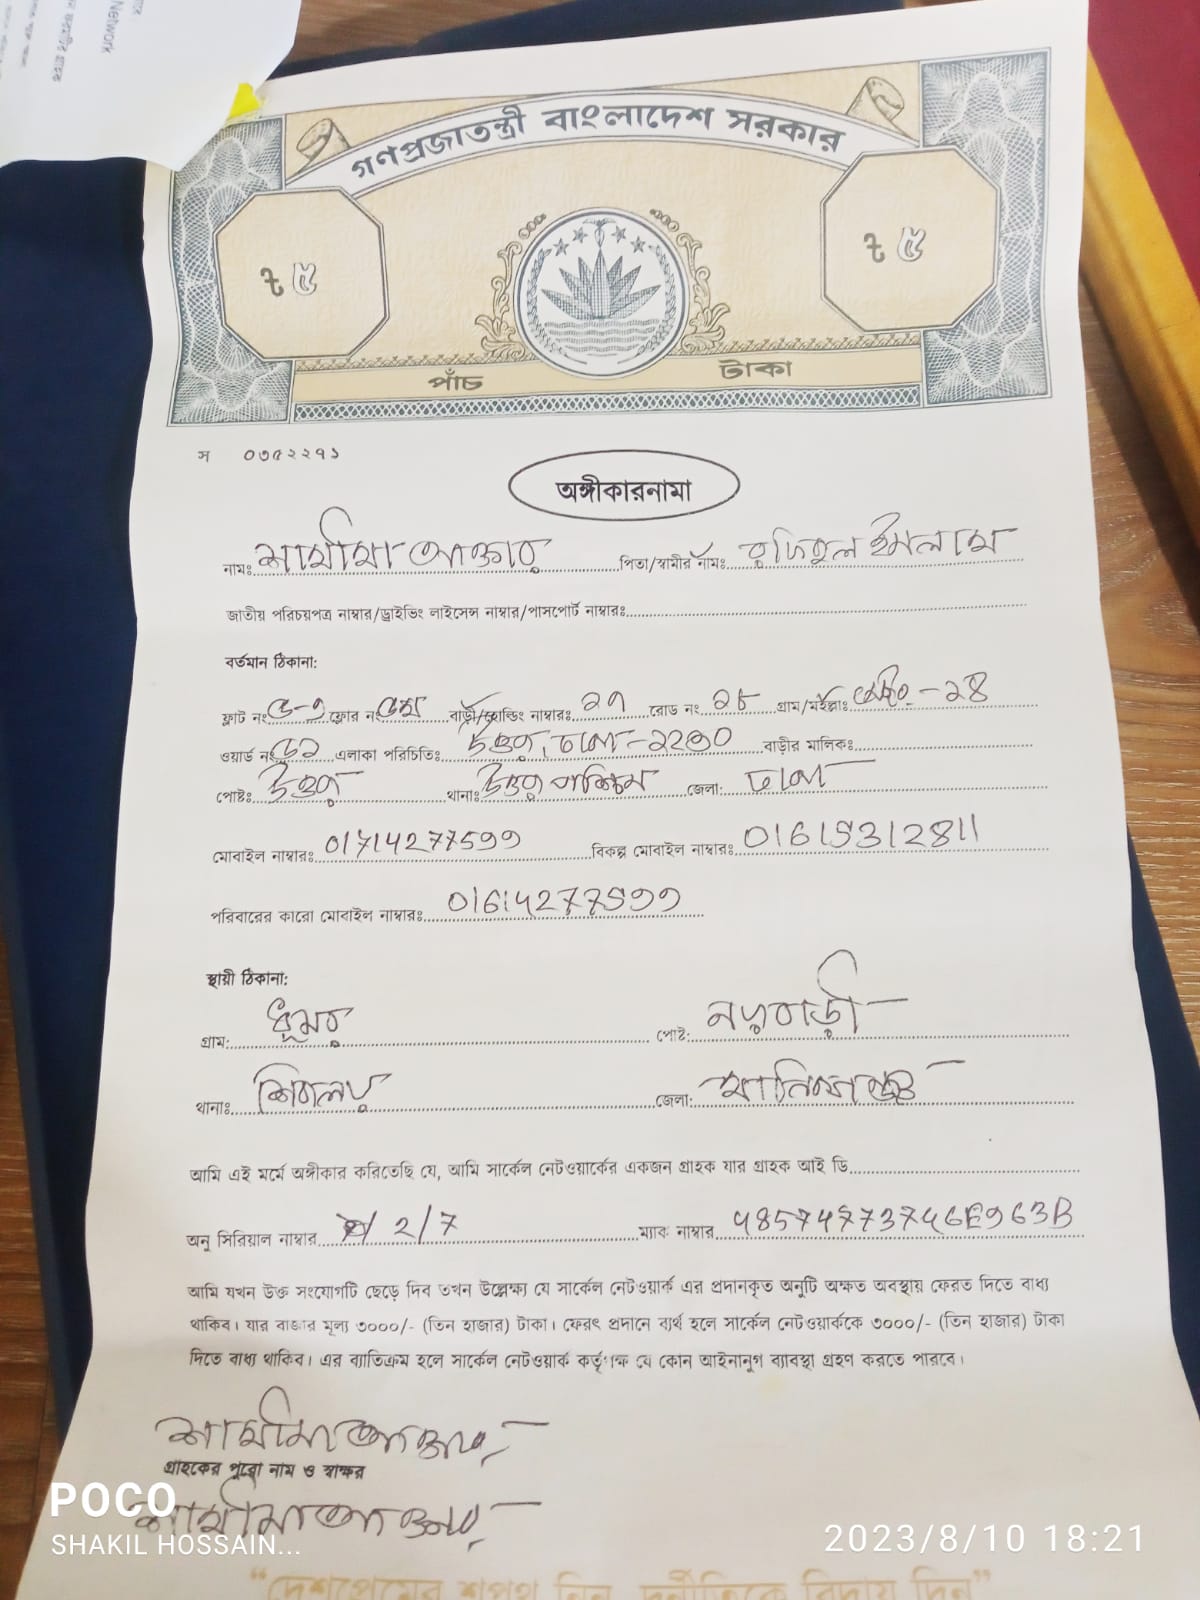 Network
গণপ্রজাতন্ত্রী বাংলাদেশ সরকার
৳ ৫ ৳ ৫
পাঁচ টাকা
স ০৩৫২২৭১
অঙ্গীকারনামা
নামঃ শামীমা আক্তার পিতা/স্বামীর নামঃ রফিকুল ইসলাম
জাতীয় পরিচয়পত্র নাম্বার/ড্রাইভিং লাইসেন্স নাম্বার/পাসপোর্ট নাম্বারঃ
বর্তমান ঠিকানা:
ফ্লাট নং ফ্লোর নং বাড়ী/হোল্ডিং নাম্বারঃ ২৭ রোড নং ২৮ গ্রাম/মহল্লাঃ
ওয়ার্ড নং এলাকা পরিচিতিঃ উত্তরা, ঢাকা-১২৩০ বাড়ীর মালিকঃ
পোষ্টঃ উত্তরা থানাঃ উত্তরা পশ্চিম জেলা: ঢাকা
মোবাইল নাম্বারঃ বিকল্প মোবাইল নাম্বারঃ 01615312811
পরিবারের কারো মোবাইল নাম্বারঃ
স্থায়ী ঠিকানা:
গ্রাম: পোষ্ট:
থানাঃ জেলা: মানিকগঞ্জ
আমি এই মর্মে অঙ্গীকার করিতেছি যে, আমি সার্কেল নেটওয়ার্কের একজন গ্রাহক যার গ্রাহক আই ডি
অনু সিরিয়াল নাম্বার 2/7 ম্যাক নাম্বার
আমি যখন উক্ত সংযোগটি ছেড়ে দিব তখন উল্লেক্ষ্য যে সার্কেল নেটওয়ার্ক এর প্রদানকৃত অনুটি অক্ষত অবস্থায় ফেরত দিতে বাধ্য
থাকিব। যার বাজার মূল্য ৩০০০/- (তিন হাজার) টাকা। ফেরৎ প্রদানে ব্যর্থ হলে সার্কেল নেটওয়ার্ককে ৩০০০/- (তিন হাজার) টাকা
দিতে বাধ্য থাকিব। এর ব্যাতিক্রম হলে সার্কেল নেটওয়ার্ক কর্তৃপক্ষ যে কোন আইনানুগ ব্যাবস্থা গ্রহণ করতে পারবে।
শামীমা আক্তার
গ্রাহকের পুরো নাম ও স্বাক্ষর
শামীমা আক্তার
POCO
SHAKIL HOSSAIN...
2023/8/10 18:21
“দেশপ্রেমের শপথ নিন, দুর্নীতিকে বিদায় দিন”